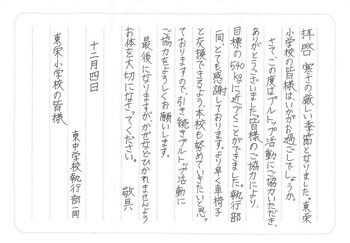 拝啓 寒さの厳しい季節となりました。東栄
小学校の皆様はいかがお過ごしでしょうか。
さて、この度はプルトップ活動にご協力いただき、
ありがとうございました。皆様のご協力により、
目標の540kgに近づくことができました。執行部
一同、とても感謝しております。より早く車椅子
と交換できるよう、本校も努めていきたいと思っ
ておりますので、引き続きプルトップ活動に
ご協力をよろしくお願いします。
最後になりますが、かぜなどひかれませんよう
お体を大切になさってください。
敬具
十二月四日
東中学校執行部一同
東栄小学校の皆様